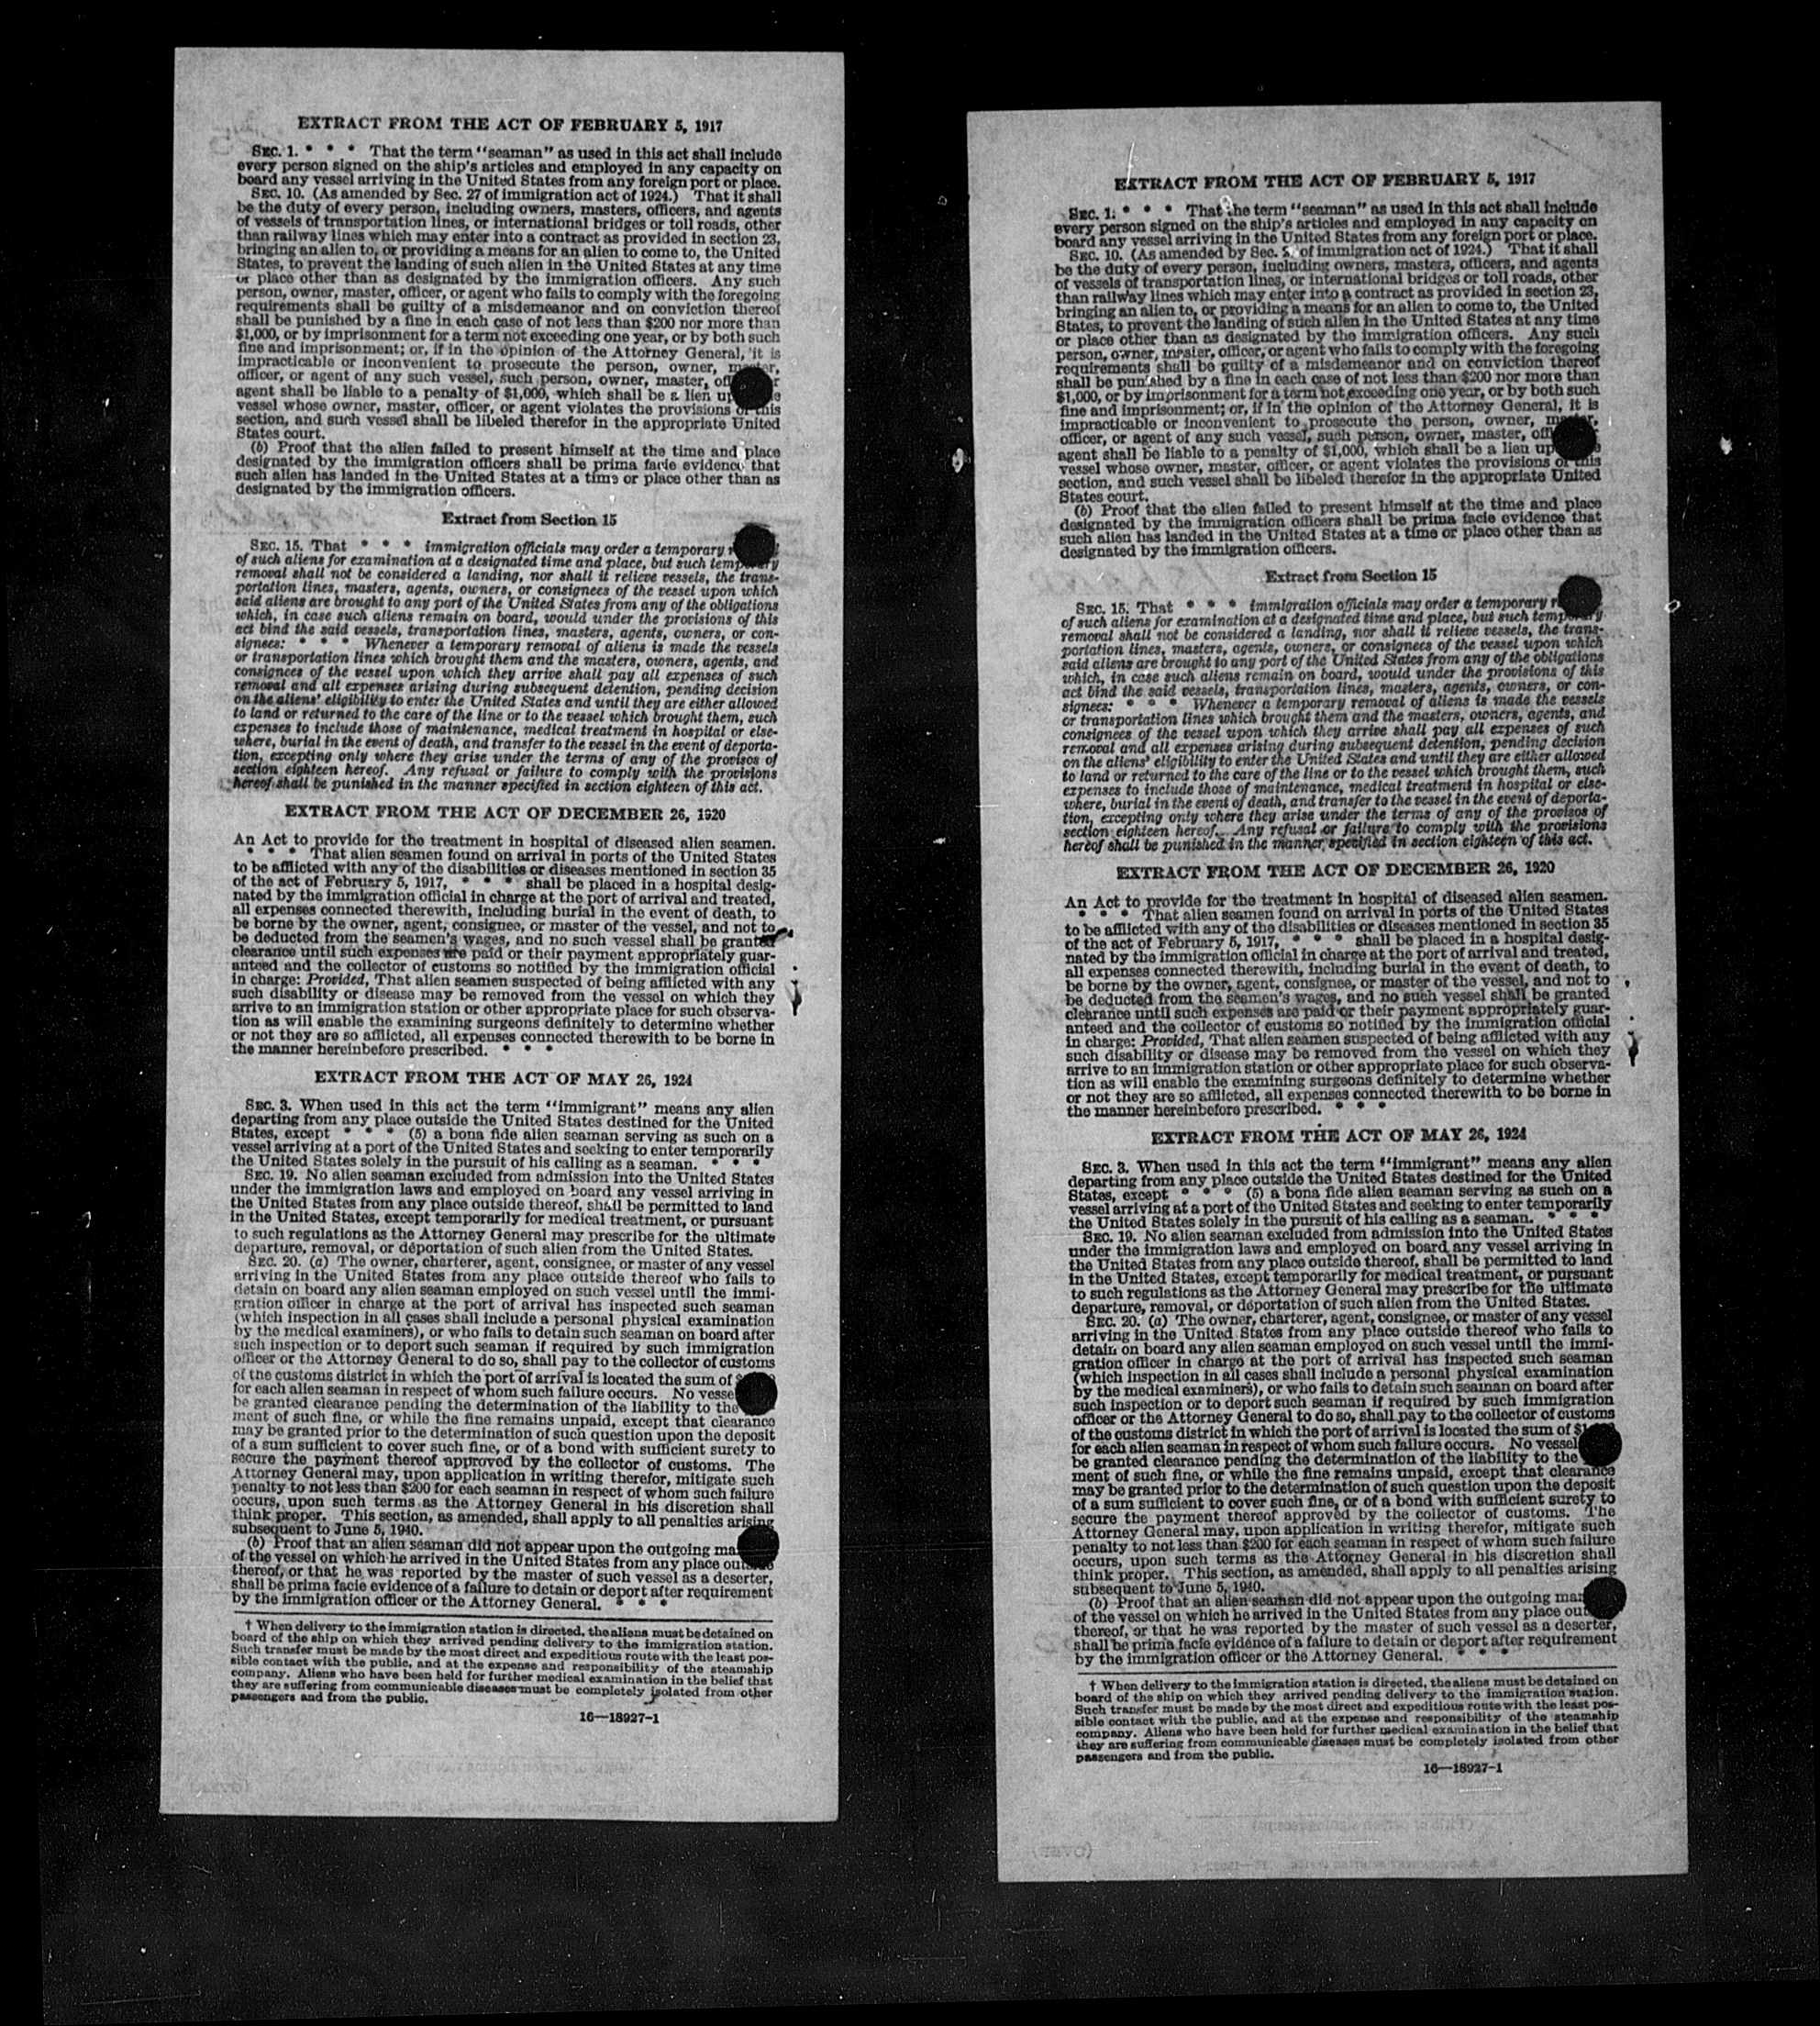 EXTRACT FROM THE ACT OF FEBRUARY 5, 1917
SEC. 1. * * * That the term "seaman" as used in this act shall include
every person signed on the ship's articles and employed in any capacity on
board any vessel arriving in the United States from any foreign port or place.
SEC. 10. (As amended by Sec. 27 of immigration act of 1924.) That it shall
be the duty of every person, including owners, masters, officers, and agents
of vessels of transportation lines, or international bridges or toll roads, other
than railway lines which may enter into a contract as provided in section 23,
bringing an alien to, or providing a means for an alien to come to, the United
States, to prevent the landing of such alien in the United States at any time
or place other than as designated by the immigration officers. Any such
person, owner, master, officer, or agent who fails to comply with the foregoing
requirements shall be guilty of a misdemeanor and on conviction thereof
shall be punished by a fine in each case of not less than $200 nor more than
$1,000, or by imprisonment for a term not exceeding one year, or by both such
fine and imprisonment; or, if in the opinion of the Attorney General, it is
impracticable or inconvenient to prosecute the person, owner, master,
officer, or agent of any such vessel, such person, owner, master,
agent shall be liable to a penalty of $1,000, which shall be a lien
vessel whose owner, master, officer, or agent violates the provisions of this
section, and such vessel shall be libeled therefor in the appropriate United
States court.
(b) Proof that the alien failed to present himself at the time and place
designated by the immigration officers shall be prima facie evidence that
such alien has landed in the United States at a time or place other than as
designated by the immigration officers.
Extract from Section 15
SEC. 15. That * * * immigration officials may order a temporary
of such aliens for examination at a designated time and place, but such temporary
removal shall not be considered a landing, nor shall it relieve vessels, the trans-
portation lines, masters, agents, owners, or consignees of the vessel upon which
said aliens are brought to any port of the United States from any of the obligations
which, in case such aliens remain on board, would under the provisions of this
act bind the said vessels, transportation lines, masters, agents, owners, or con-
signees: * * * Whenever a temporary removal of aliens is made the vessels
or transportation lines which brought them and the masters, owners, agents, and
consignees of the vessel upon which they arrive shall pay all expenses of such
removal and all expenses arising during subsequent detention, pending decision
on the aliens' eligibility to enter the United States and until they are either allowed
to land or returned to the care of the line or to the vessel which brought them, such
expenses to include those of maintenance, medical treatment in hospital or else-
where, burial in the event of death, and transfer to the vessel in the event of deporta-
tion, excepting only where they arise under the terms of any of the provisos of
section eighteen hereof. Any refusal or failure to comply with the provisions
hereof shall be punished in the manner specified in section eighteen of this act.
EXTRACT FROM THE ACT OF DECEMBER 26, 1920
An Act to provide for the treatment in hospital of diseased alien seamen.
* * * That alien seamen found on arrival in ports of the United States
to be afflicted with any of the disabilities or diseases mentioned in section 35
of the act of February 5, 1917, * * * shall be placed in a hospital desig-
nated by the immigration official in charge at the port of arrival and treated,
all expenses connected therewith, including burial in the event of death, to
be borne by the owner, agent, consignee, or master of the vessel, and not to
be deducted from the seamen's wages, and no such vessel shall be granted
clearance until such expenses are paid or their payment appropriately guar-
anteed and the collector of customs so notified by the immigration official
in charge: Provided, That alien seamen suspected of being afflicted with any
such disability or disease may be removed from the vessel on which they
arrive to an immigration station or other appropriate place for such observa-
tion as will enable the examining surgeons definitely to determine whether
or not they are so afflicted, all expenses connected therewith to be borne in
the manner hereinbefore prescribed. * * *
EXTRACT FROM THE ACT OF MAY 26, 1924
SEC. 3. When used in this act the term "immigrant" means any alien
departing from any place outside the United States destined for the United
States, except * * * (5) a bona fide alien seaman serving as such on a
vessel arriving at a port of the United States and seeking to enter temporarily
the United States solely in the pursuit of his calling as a seaman. * * *
SEC. 19. No alien seaman excluded from admission into the United States
under the immigration laws and employed on board any vessel arriving in
the United States from any place outside thereof, shall be permitted to land
in the United States, except temporarily for medical treatment, or pursuant
to such regulations as the Attorney General may prescribe for the ultimate
departure, removal, or deportation of such alien from the United States.
SEC. 20. (a) The owner, charterer, agent, consignee, or master of any vessel
arriving in the United States from any place outside thereof who fails to
detain on board any alien seaman employed on such vessel until the immi-
gration officer in charge at the port of arrival has inspected such seaman
(which inspection in all cases shall include a personal physical examination
by the medical examiners), or who fails to detain such seaman on board after
such inspection or to deport such seaman if required by such immigration
officer or the Attorney General to do so, shall pay to the collector of customs
of the customs district in which the port of arrival is located the sum of
for each alien seaman in respect of whom such failure occurs. No
be granted clearance pending the determination of the liability to the
ment of such fine, or while the fine remains unpaid, except that clearance
may be granted prior to the determination of such question upon the deposit
of a sum sufficient to cover such fine, or of a bond with sufficient surety to
secure the payment thereof approved by the collector of customs. The
Attorney General may, upon application in writing therefor, mitigate such
penalty to not less than $200 for each seaman in respect of whom such failure
occurs, upon such terms as the Attorney General in his discretion shall
think proper. This section, as amended, shall apply to all penalties arising
subsequent to June 5, 1940.
(b) Proof that an alien seaman did not appear upon the outgoing
of the vessel on which he arrived in the United States from any place outside
thereof, or that he was reported by the master of such vessel as a deserter,
shall be prima facie evidence of a failure to detain or deport after requirement
by the immigration officer or the Attorney General. * * *
† When delivery to the immigration station is directed, the aliens must be detained on
board of the ship on which they arrived pending delivery to the immigration station.
Such transfer must be made by the most direct and expeditious route with the least pos-
sible contact with the public, and at the expense and responsibility of the steamship
company. Aliens who have been held for further medical examination in the belief that
they are suffering from communicable diseases must be completely isolated from other
passengers and from the public.
16—18927-1
EXTRACT FROM THE ACT OF FEBRUARY 5, 1917
SEC. 1. * * * That the term "seaman" as used in this act shall include
every person signed on the ship's articles and employed in any capacity on
board any vessel arriving in the United States from any foreign port or place.
SEC. 10. (As amended by Sec. of immigration act of 1924.) That it shall
be the duty of every person, including owners, masters, officers, and agents
of vessels of transportation lines, or international bridges or toll roads, other
than railway lines which may enter into a contract as provided in section 23,
bringing an alien to, or providing a means for an alien to come to, the United
States, to prevent the landing of such alien in the United States at any time
or place other than as designated by the immigration officers. Any such
person, owner, master, officer, or agent who fails to comply with the foregoing
requirements shall be guilty of a misdemeanor and on conviction thereof
shall be punished by a fine in each case of not less than $200 nor more than
$1,000, or by imprisonment for a term not exceeding one year, or by both such
fine and imprisonment; or, if in the opinion of the Attorney General, it is
impracticable or inconvenient to prosecute the person, owner, master,
officer, or agent of any such vessel, such person, owner, master,
agent shall be liable to a penalty of $1,000, which shall be a lien
vessel whose owner, master, officer, or agent violates the provisions of this
section, and such vessel shall be libeled therefor in the appropriate United
States court.
(b) Proof that the alien failed to present himself at the time and place
designated by the immigration officers shall be prima facie evidence that
such alien has landed in the United States at a time or place other than as
designated by the immigration officers.
Extract from Section 15
SEC. 15. That * * * immigration officials may order a temporary
of such aliens for examination at a designated time and place, but such temporary
removal shall not be considered a landing, nor shall it relieve vessels, the trans-
portation lines, masters, agents, owners, or consignees of the vessel upon which
said aliens are brought to any port of the United States from any of the obligations
which, in case such aliens remain on board, would under the provisions of this
act bind the said vessels, transportation lines, masters, agents, owners, or con-
signees: * * * Whenever a temporary removal of aliens is made the vessels
or transportation lines which brought them and the masters, owners, agents, and
consignees of the vessel upon which they arrive shall pay all expenses of such
removal and all expenses arising during subsequent detention, pending decision
on the aliens' eligibility to enter the United States and until they are either allowed
to land or returned to the care of the line or to the vessel which brought them, such
expenses to include those of maintenance, medical treatment in hospital or else-
where, burial in the event of death, and transfer to the vessel in the event of deporta-
tion, excepting only where they arise under the terms of any of the provisos of
section eighteen hereof. Any refusal or failure to comply with the provisions
hereof shall be punished in the manner specified in section eighteen of this act.
EXTRACT FROM THE ACT OF DECEMBER 26, 1920
An Act to provide for the treatment in hospital of diseased alien seamen.
* * * That alien seamen found on arrival in ports of the United States
to be afflicted with any of the disabilities or diseases mentioned in section 35
of the act of February 5, 1917, * * * shall be placed in a hospital desig-
nated by the immigration official in charge at the port of arrival and treated,
all expenses connected therewith, including burial in the event of death, to
be borne by the owner, agent, consignee, or master of the vessel, and not to
be deducted from the seamen's wages, and no such vessel shall be granted
clearance until such expenses are paid or their payment appropriately guar-
anteed and the collector of customs so notified by the immigration official
in charge: Provided, That alien seamen suspected of being afflicted with any
such disability or disease may be removed from the vessel on which they
arrive to an immigration station or other appropriate place for such observa-
tion as will enable the examining surgeons definitely to determine whether
or not they are so afflicted, all expenses connected therewith to be borne in
the manner hereinbefore prescribed. * * *
EXTRACT FROM THE ACT OF MAY 26, 1924
SEC. 3. When used in this act the term "immigrant" means any alien
departing from any place outside the United States destined for the United
States, except * * * (5) a bona fide alien seaman serving as such on a
vessel arriving at a port of the United States and seeking to enter temporarily
the United States solely in the pursuit of his calling as a seaman. * * *
SEC. 19. No alien seaman excluded from admission into the United States
under the immigration laws and employed on board any vessel arriving in
the United States from any place outside thereof, shall be permitted to land
in the United States, except temporarily for medical treatment, or pursuant
to such regulations as the Attorney General may prescribe for the ultimate
departure, removal, or deportation of such alien from the United States.
SEC. 20. (a) The owner, charterer, agent, consignee, or master of any vessel
arriving in the United States from any place outside thereof who fails to
detain on board any alien seaman employed on such vessel until the immi-
gration officer in charge at the port of arrival has inspected such seaman
(which inspection in all cases shall include a personal physical examination
by the medical examiners), or who fails to detain such seaman on board after
such inspection or to deport such seaman if required by such immigration
officer or the Attorney General to do so, shall pay to the collector of customs
of the customs district in which the port of arrival is located the sum of
for each alien seaman in respect of whom such failure occurs. No vessel
be granted clearance pending the determination of the liability to the
ment of such fine, or while the fine remains unpaid, except that clearance
may be granted prior to the determination of such question upon the deposit
of a sum sufficient to cover such fine, or of a bond with sufficient surety to
secure the payment thereof approved by the collector of customs. The
Attorney General may, upon application in writing therefor, mitigate such
penalty to not less than $200 for each seaman in respect of whom such failure
occurs, upon such terms as the Attorney General in his discretion shall
think proper. This section, as amended, shall apply to all penalties arising
subsequent to June 5, 1940.
(b) Proof that an alien seaman did not appear upon the outgoing
of the vessel on which he arrived in the United States from any place outside
thereof, or that he was reported by the master of such vessel as a deserter,
shall be prima facie evidence of a failure to detain or deport after requirement
by the immigration officer or the Attorney General. * * *
† When delivery to the immigration station is directed, the aliens must be detained on
board of the ship on which they arrived pending delivery to the immigration station.
Such transfer must be made by the most direct and expeditious route with the least pos-
sible contact with the public, and at the expense and responsibility of the steamship
company. Aliens who have been held for further medical examination in the belief that
they are suffering from communicable diseases must be completely isolated from other
passengers and from the public.
16—18927-1